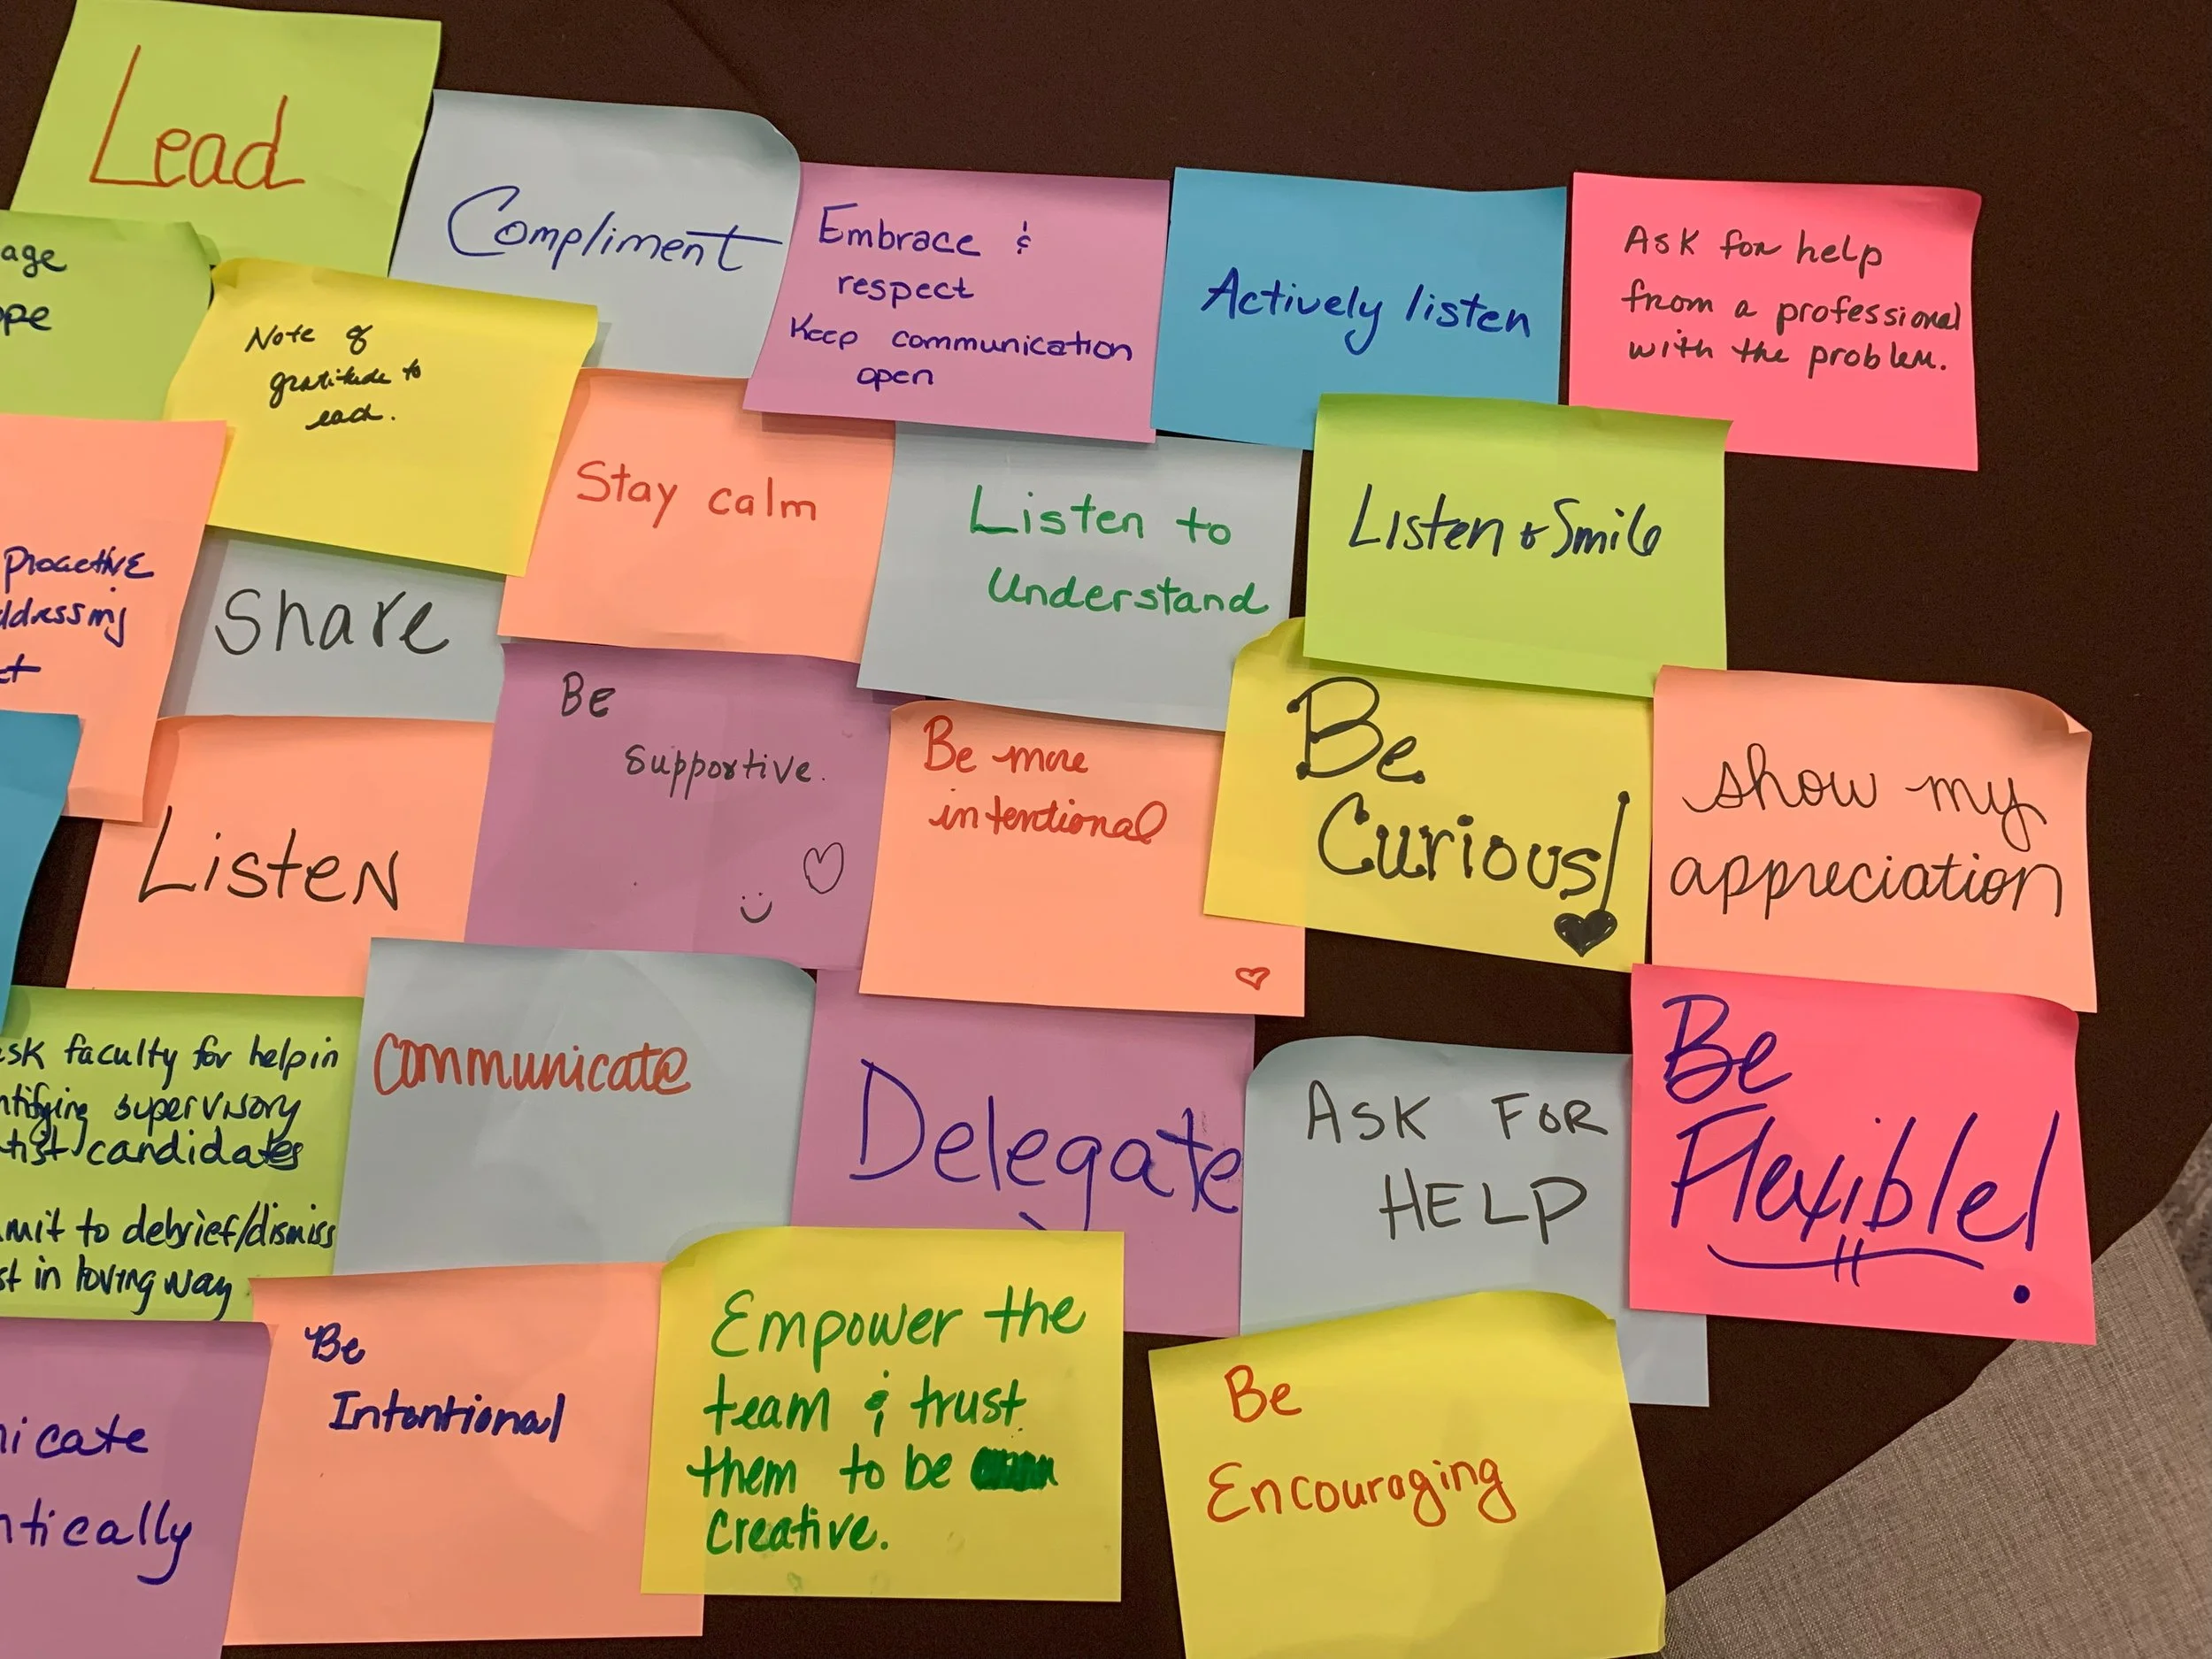 Lead
Compliment
Embrace &
respect
Keep communication
open
Actively listen
Ask for help
from a professional
with the problem.
age
ope
Note of
gratitude to
each.
Stay calm
Listen to
Understand
Listen & Smile
Proactive
ddressing
ct
Share
Listen
Be
supportive.
Be more
intentional
Be
Curious!
show my
appreciation
ask faculty for help in
ntifying supervisory
tist candidates
mmit to debrief/dismiss
st in loving way
Communicate
Delegate
ASK FOR
HELP
Be
Flexible!
nicate
ntically
Be
Intentional
Empower the
team & trust
them to be
creative.
Be
Encouraging